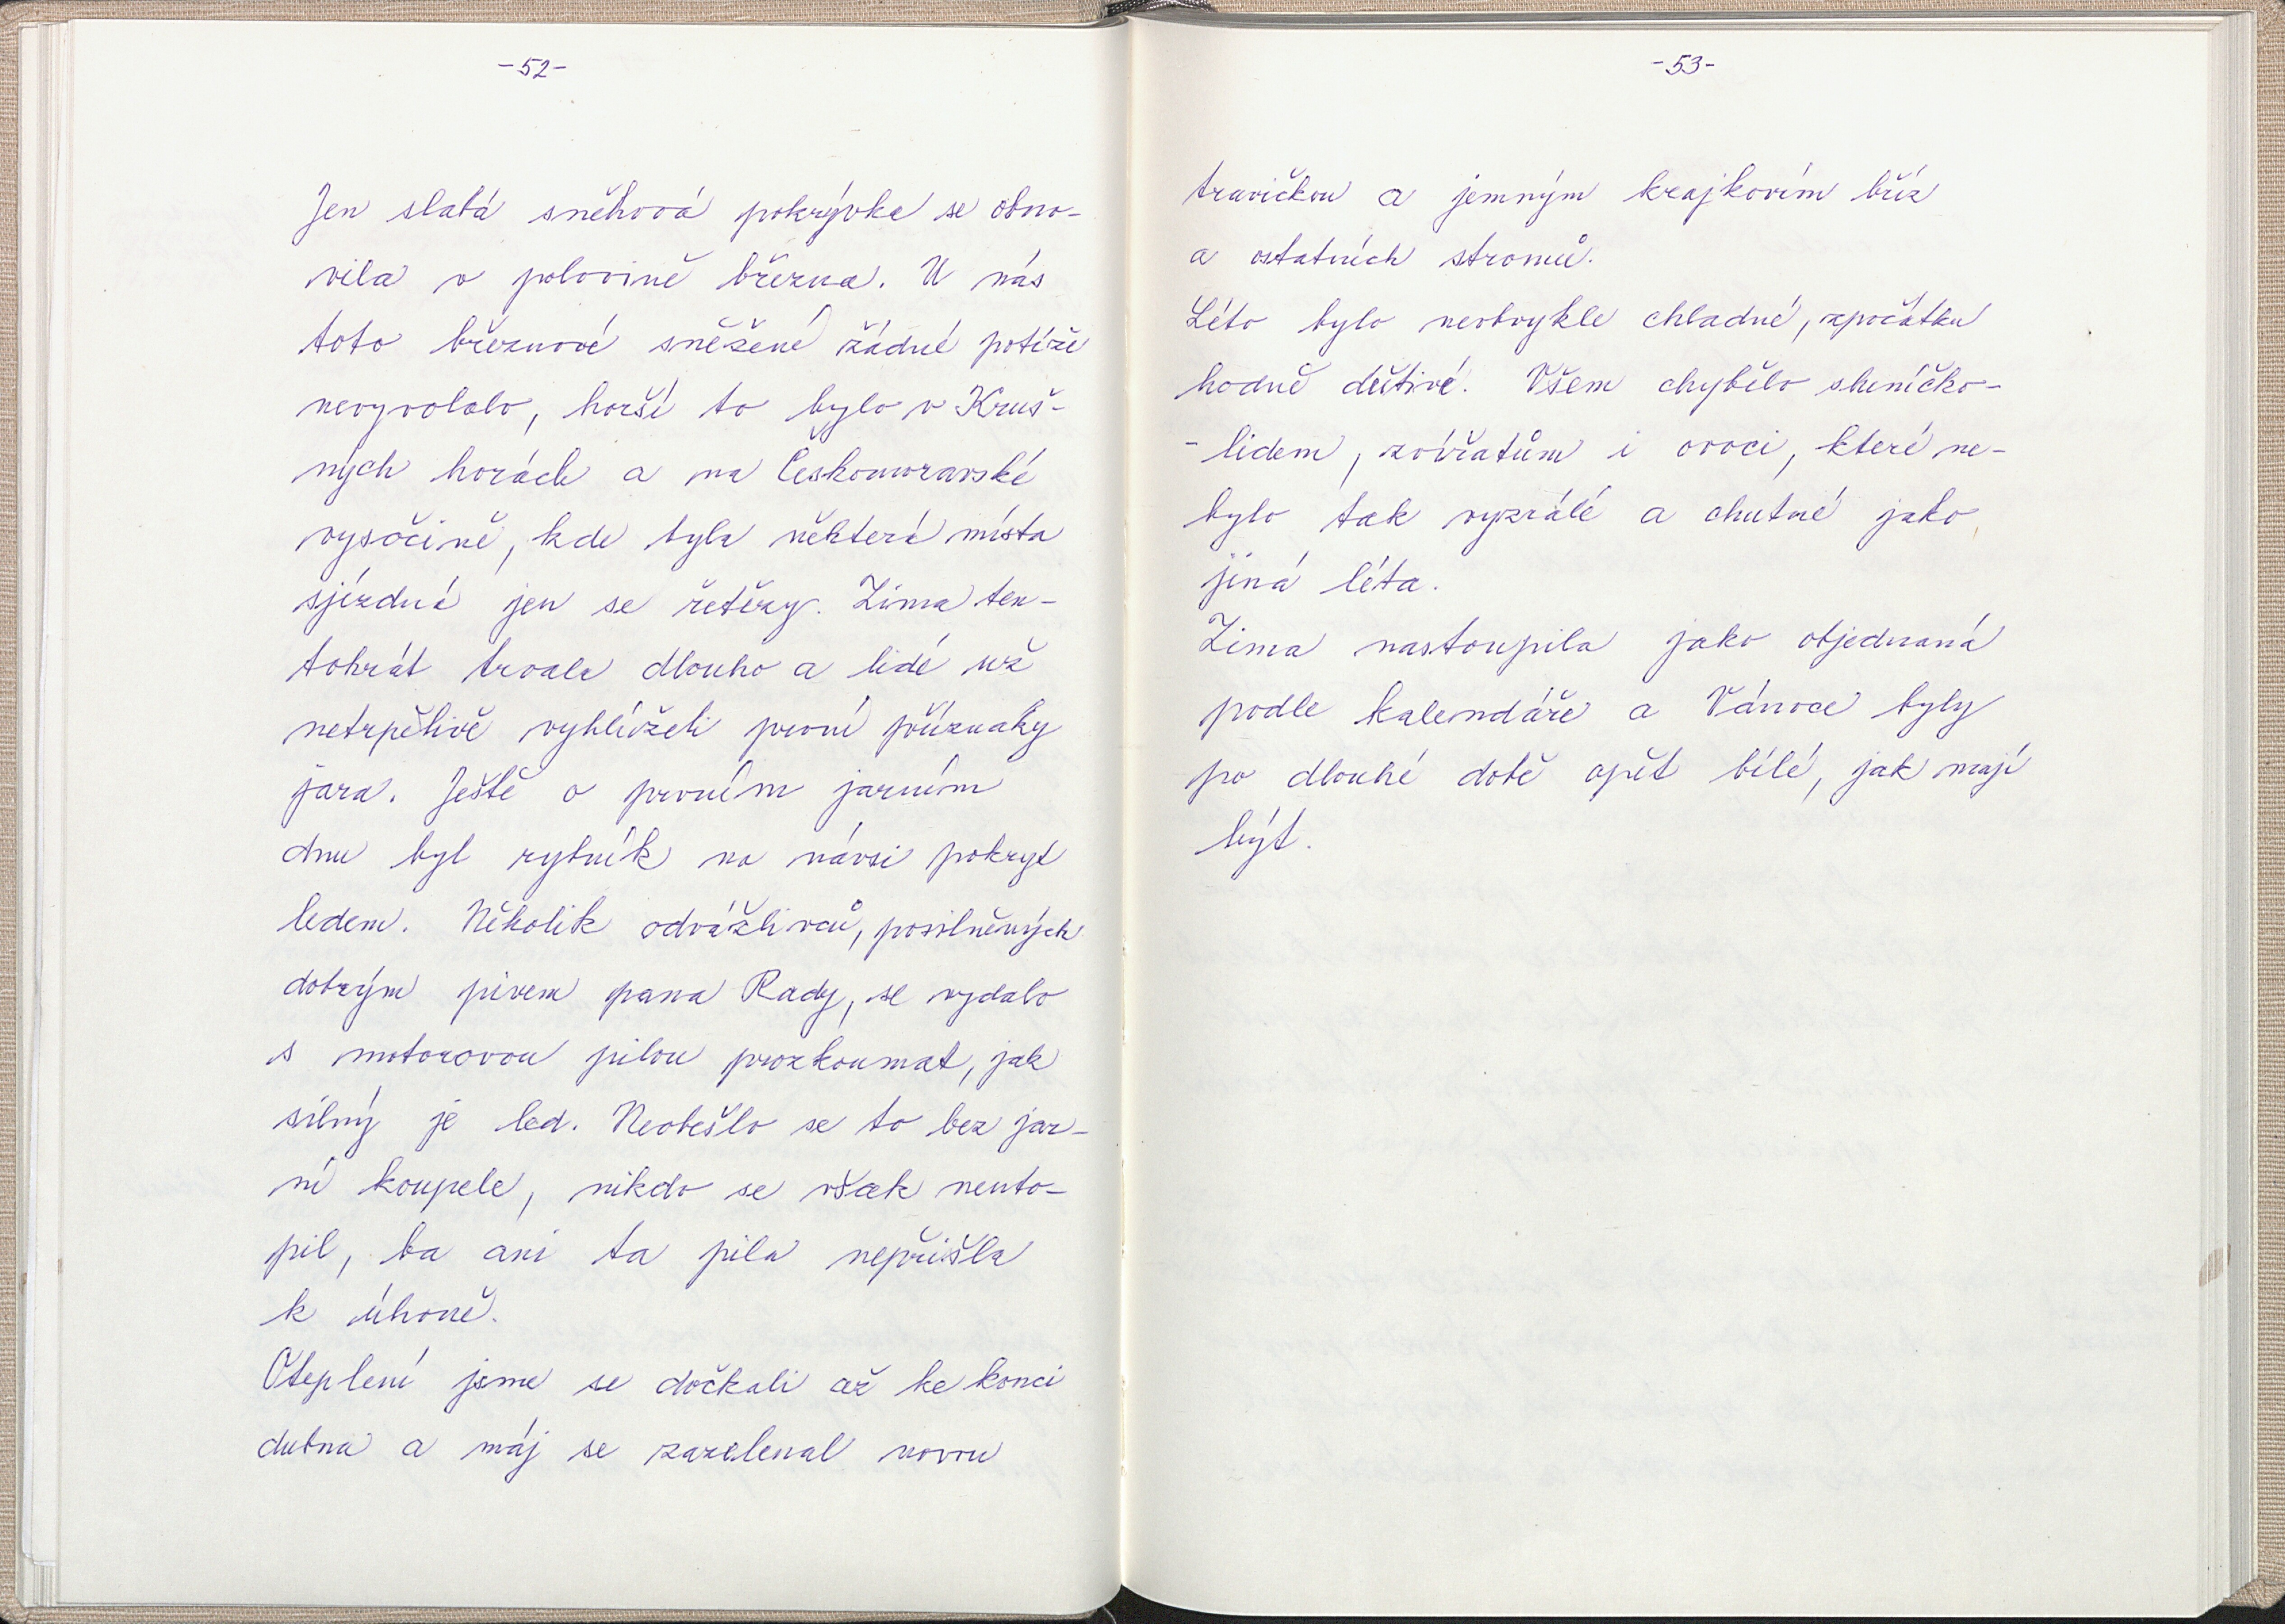 -52-
Jen slabá sněhová pokrývka se obno-
vila v polovině března. U nás
toto březnové sněžení žádné potíže
nevyvolalo, horší to bylo v Kruš-
ných horách a na Českomoravské
vysočině, kde byla některá místa
sjízdná jen se řetězy. Zima ten-
tokrát trvala dlouho a lidé už
netrpělivě vyhlíželi první příznaky
jara. Ještě o prvním jarním
dnu byl rybník na návsi pokryt
ledem. Několik odvážlivců, posilněných
dobrým pivem pana Rady, se vydalo
s motorovou pilou prozkoumat, jak
silný je led. Neobešlo se to bez jar-
ní koupele, nikdo se však neuto-
pil, ba ani ta pila nepřišla
k úhoně.
Oteplení jsme se dočkali až ke konci
dubna a máj se zazelenal novou
-53-
travičkou a jemným krajkovím bříz
a ostatních stromů.
Léto bylo neobvykle chladné, zpočátku
hodně deštivé. Všem chybělo sluníčko-
- lidem, zvířatům i ovoci, které ne-
bylo tak vyzrálé a chutné jako
jiná léta.
Zima nastoupila jako objednaná
podle kalendáře a Vánoce byly
po dlouhé době opět bílé, jak mají
být.